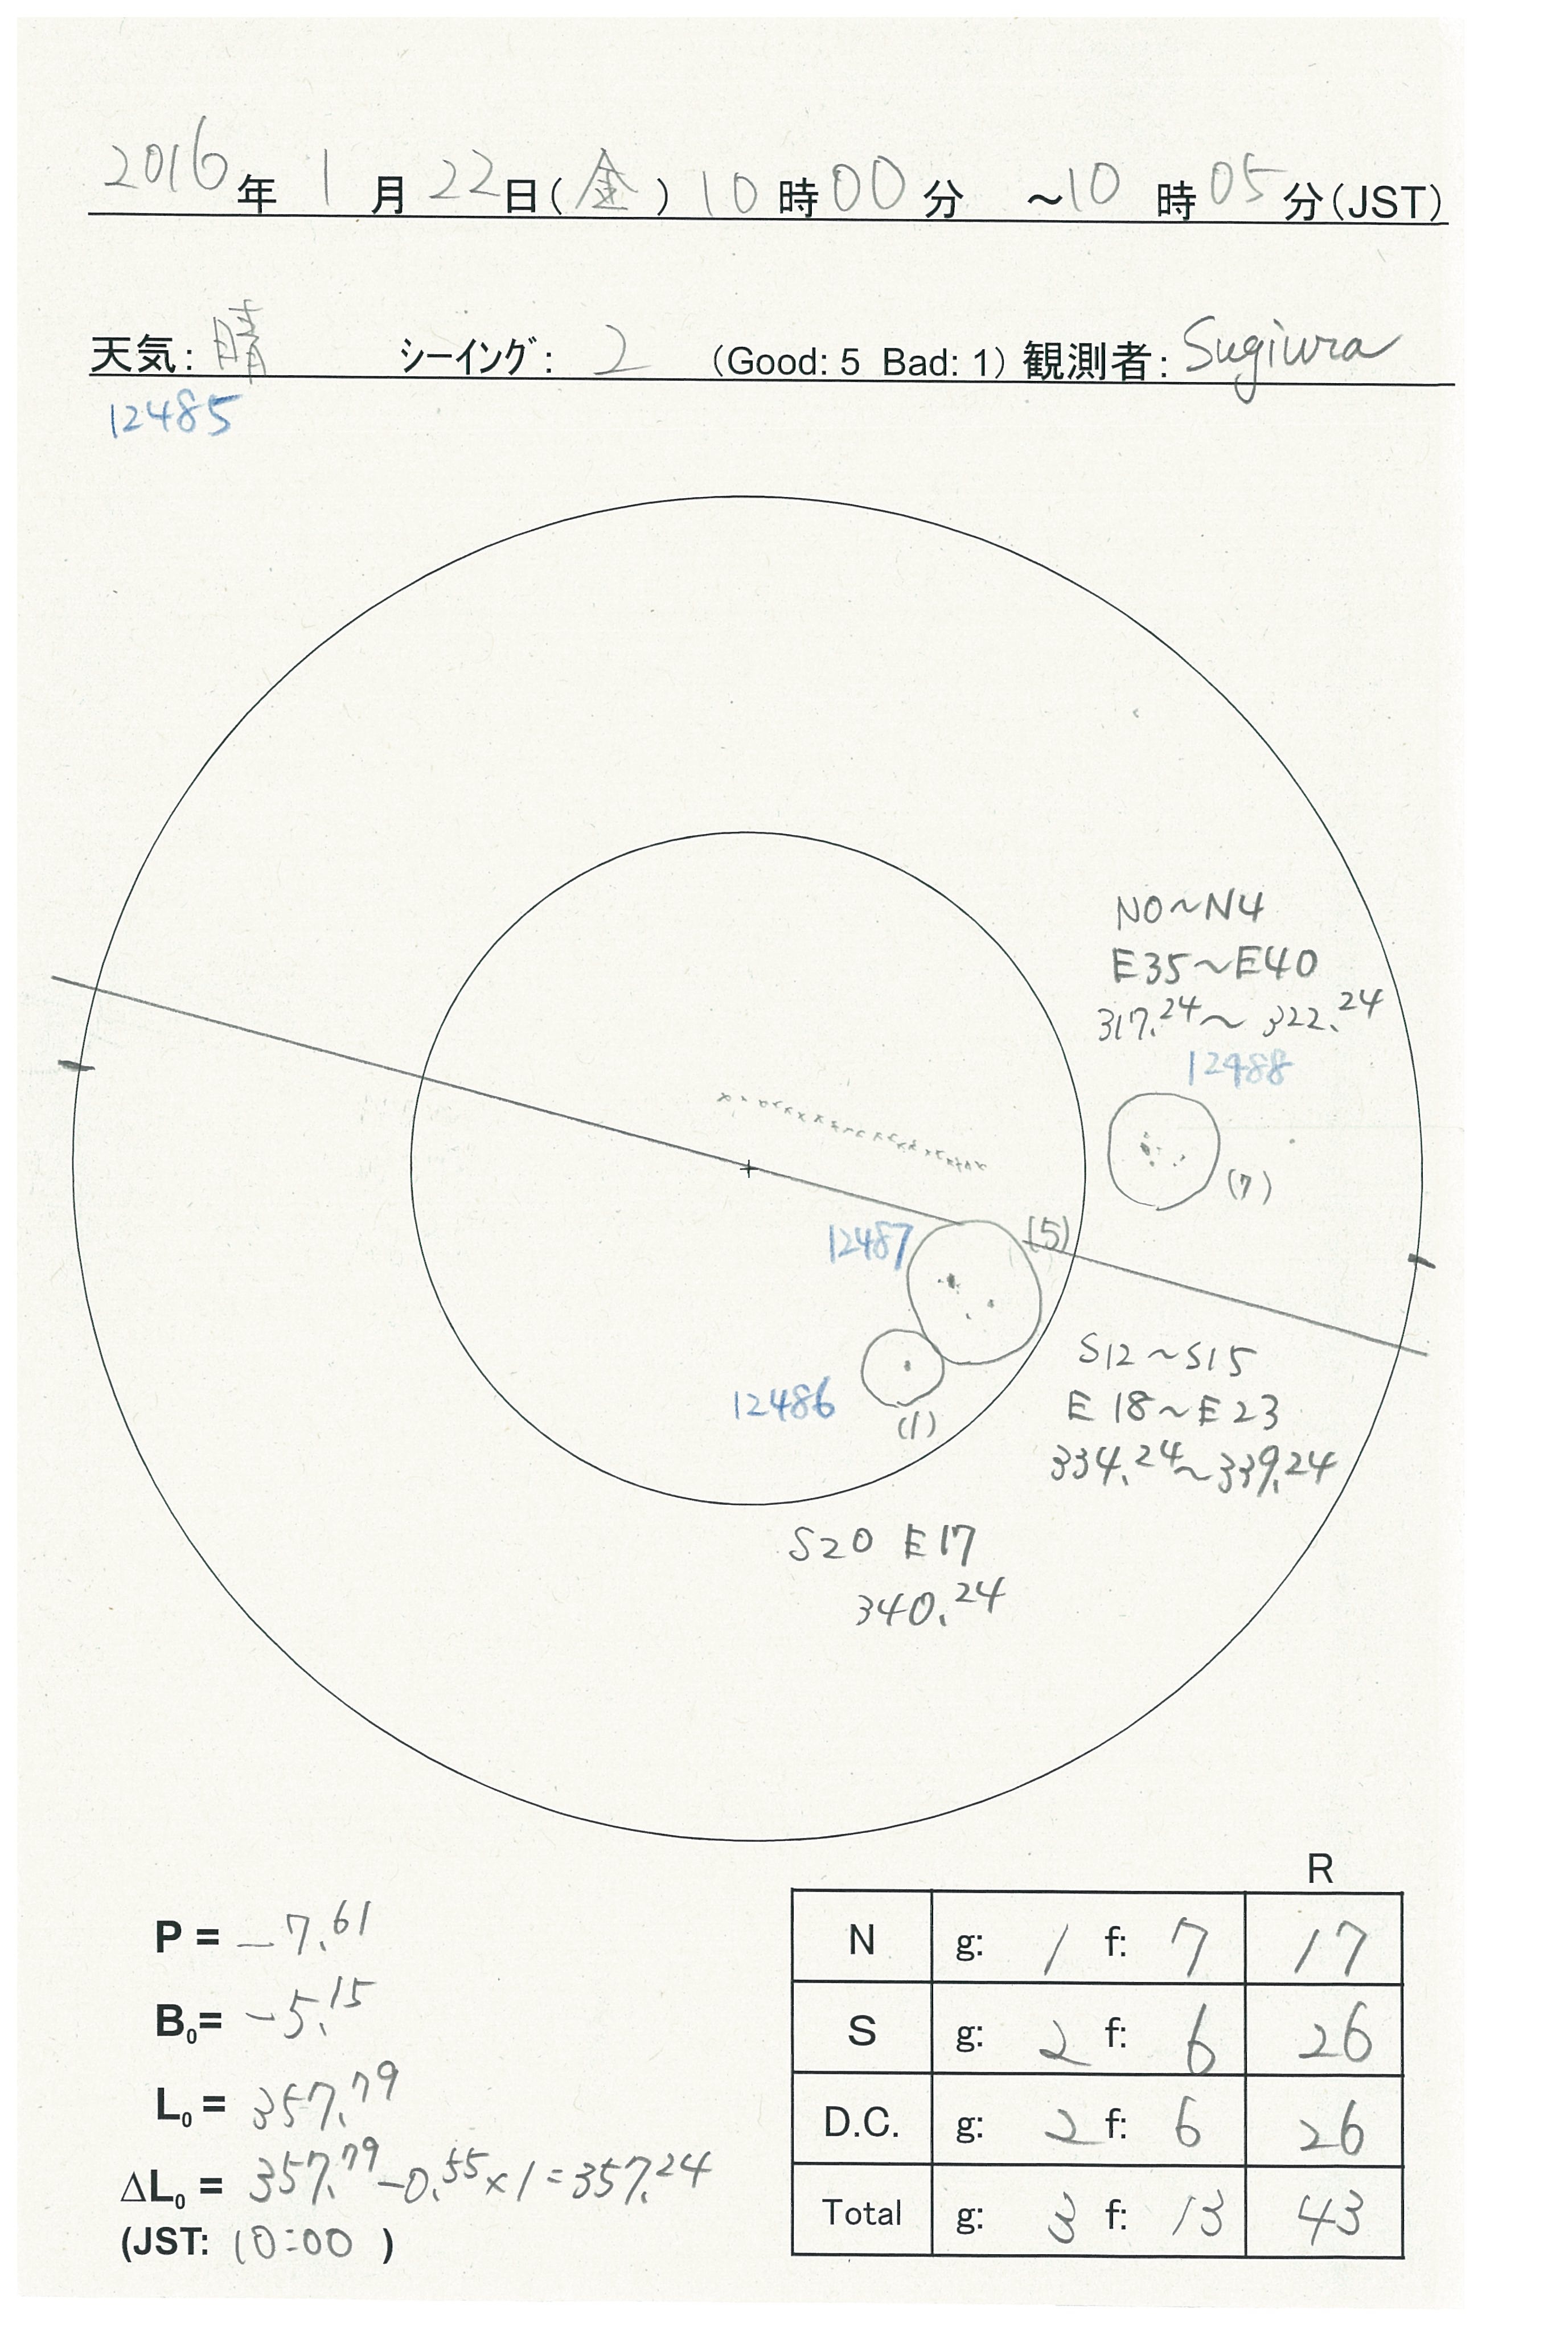 2016年 1月 22日(金) 10時00分 ～10時05分(JST)
天気: 晴 シーイング: 2 (Good: 5 Bad: 1) 観測者: Sugiura
12485
N0～N4
E35～E40
317.24～322.24
12488
(7)
12487
(5)
S12～S15
E18～E23
334.24～339.24
12486
(1)
S20 E17
340.24
P = -7.61
B0= -5.15
L0 = 357.79
ΔL0 = 357.79-0.55×1=357.24
(JST: 10:00 )
R
N g: 1 f: 7 17
S g: 2 f: 6 26
D.C. g: 2 f: 6 26
Total g: 3 f: 13 43